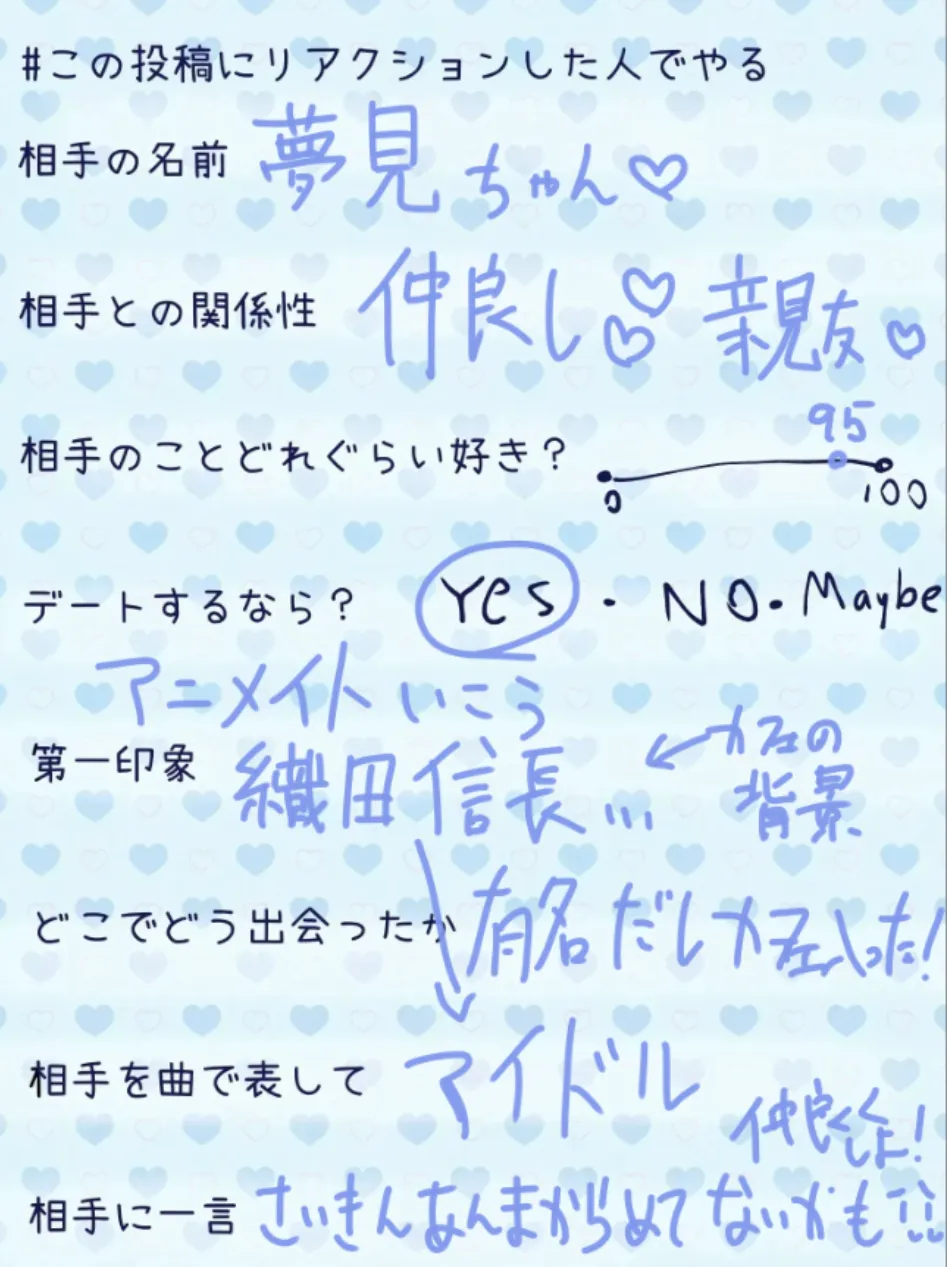 #この投稿にリアクションした人でやる
相手の名前 夢見ちゃん♡
相手との関係性 仲良し♡♡ 親友♡
95
相手のことどれぐらい好き?
0 100
デートするなら? Yes・NO・Maybe
アニメイトいこう
第一印象 織田信長... ←カフェの
背景
どこでどう出会ったか 有名だしカフェいった!
相手を曲で表して アイドル
仲良くしよ!
相手に一言 さいきんあんまからめてないかも!!